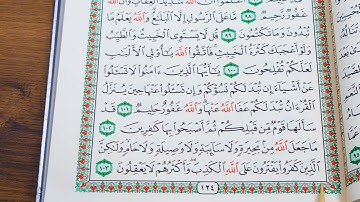 غَفُورٌ رَّحِيمٌ ٩٨ مَّا عَلَى ٱلرَّسُولِ إِلَّا ٱلْبَلَٰغُ وَٱللَّهُ يَعْلَمُ مَا
تُبْدُونَ وَمَا تَكْتُمُونَ ٩٩ قُل لَّا يَسْتَوِى ٱلْخَبِيثُ وَٱلطَّيِّبُ
وَلَوْ أَعْجَبَكَ كَثْرَةُ ٱلْخَبِيثِ فَٱتَّقُوا۟ ٱللَّهَ يَٰٓأُو۟لِى ٱلْأَلْبَٰبِ
لَعَلَّكُمْ تُفْلِحُونَ ١٠٠ يَٰٓأَيُّهَا ٱلَّذِينَ ءَامَنُوا۟ لَا تَسْـَٔلُوا۟
عَنْ أَشْيَآءَ إِن تُبْدَ لَكُمْ تَسُؤْكُمْ وَإِن تَسْـَٔلُوا۟ عَنْهَا حِينَ يُنَزَّلُ
ٱلْقُرْءَانُ تُبْدَ لَكُمْ عَفَا ٱللَّهُ عَنْهَا وَٱللَّهُ غَفُورٌ حَلِيمٌ ١٠١ قَدْ
سَأَلَهَا قَوْمٌ مِّن قَبْلِكُمْ ثُمَّ أَصْبَحُوا۟ بِهَا كَٰفِرِينَ ١٠٢
مَا جَعَلَ ٱللَّهُ مِنۢ بَحِيرَةٍ وَلَا سَآئِبَةٍ وَلَا وَصِيلَةٍ وَلَا حَامٍ وَلَٰكِنَّ
ٱلَّذِينَ كَفَرُوا۟ يَفْتَرُونَ عَلَى ٱللَّهِ ٱلْكَذِبَ وَأَكْثَرُهُمْ لَا يَعْقِلُونَ ١٠٣
١٢٤